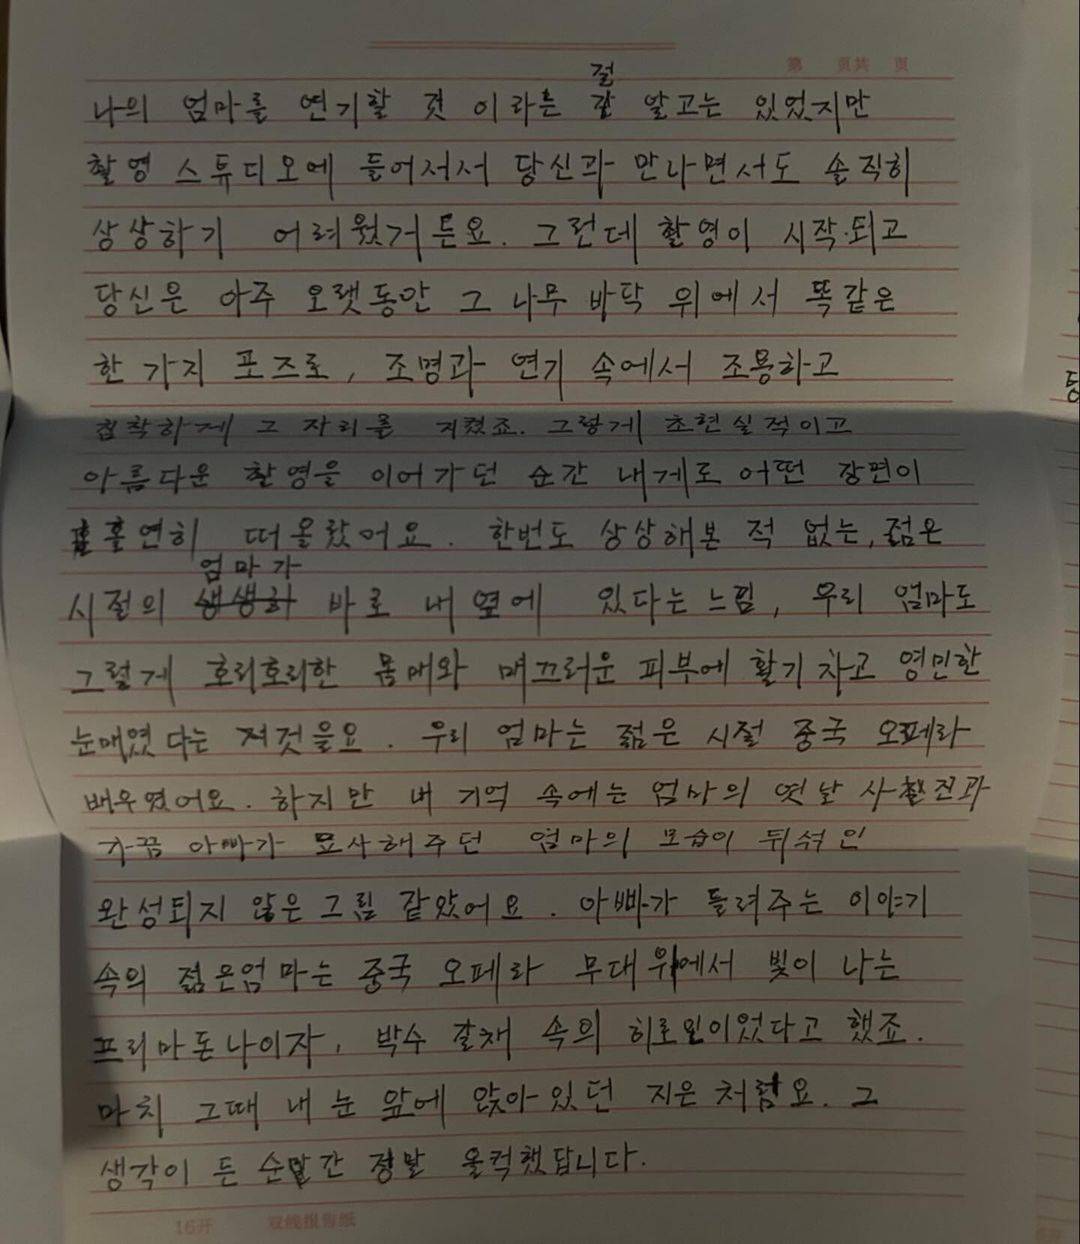 第 页共 页
절
나의 엄마를 연기할 것 이라는 잘 알고는 있었지만
촬영 스튜디오에 들어서서 당신과 만나면서도 솔직히
상상하기 어려웠거든요. 그런데 촬영이 시작되고
당신은 아주 오랫동안 그 나무 바닥 위에서 똑같은
한 가지 포즈로, 조명과 연기 속에서 조용하고
침착하게 그 자리를 지켰죠. 그렇게 초현실적이고
아름다운 촬영을 이어가던 순간 내게로 어떤 장면이
홀연히 떠올랐어요. 한번도 상상해본 적 없는, 젊은
엄마가
시절의 생생히 바로 내 옆에 있다는느낌, 우리 엄마도
그렇게 호리호리한 몸매와 매끄러운 피부에 활기차고 영민한
눈매였다는 저것을요. 우리 엄마는 젊은 시절 중국 오페라
배우였어요. 하지만 내 기억 속에는 엄마의 옛날 사진과
가끔 아빠가 묘사해주던 엄마의 모습이 뒤섞인
완성되지 않은 그림 같았어요. 아빠가 들려주는 이야기
속의 젊은엄마는 중국 오페라 무대위에서 빛이 나는
프리마돈나이자, 박수 갈채 속의 히로인이었다고 했죠.
마치 그때 내 눈 앞에 앉아있던 지은처럼요. 그
생각이 든 순간 정말 울컥했답니다.
16开 双线报告纸